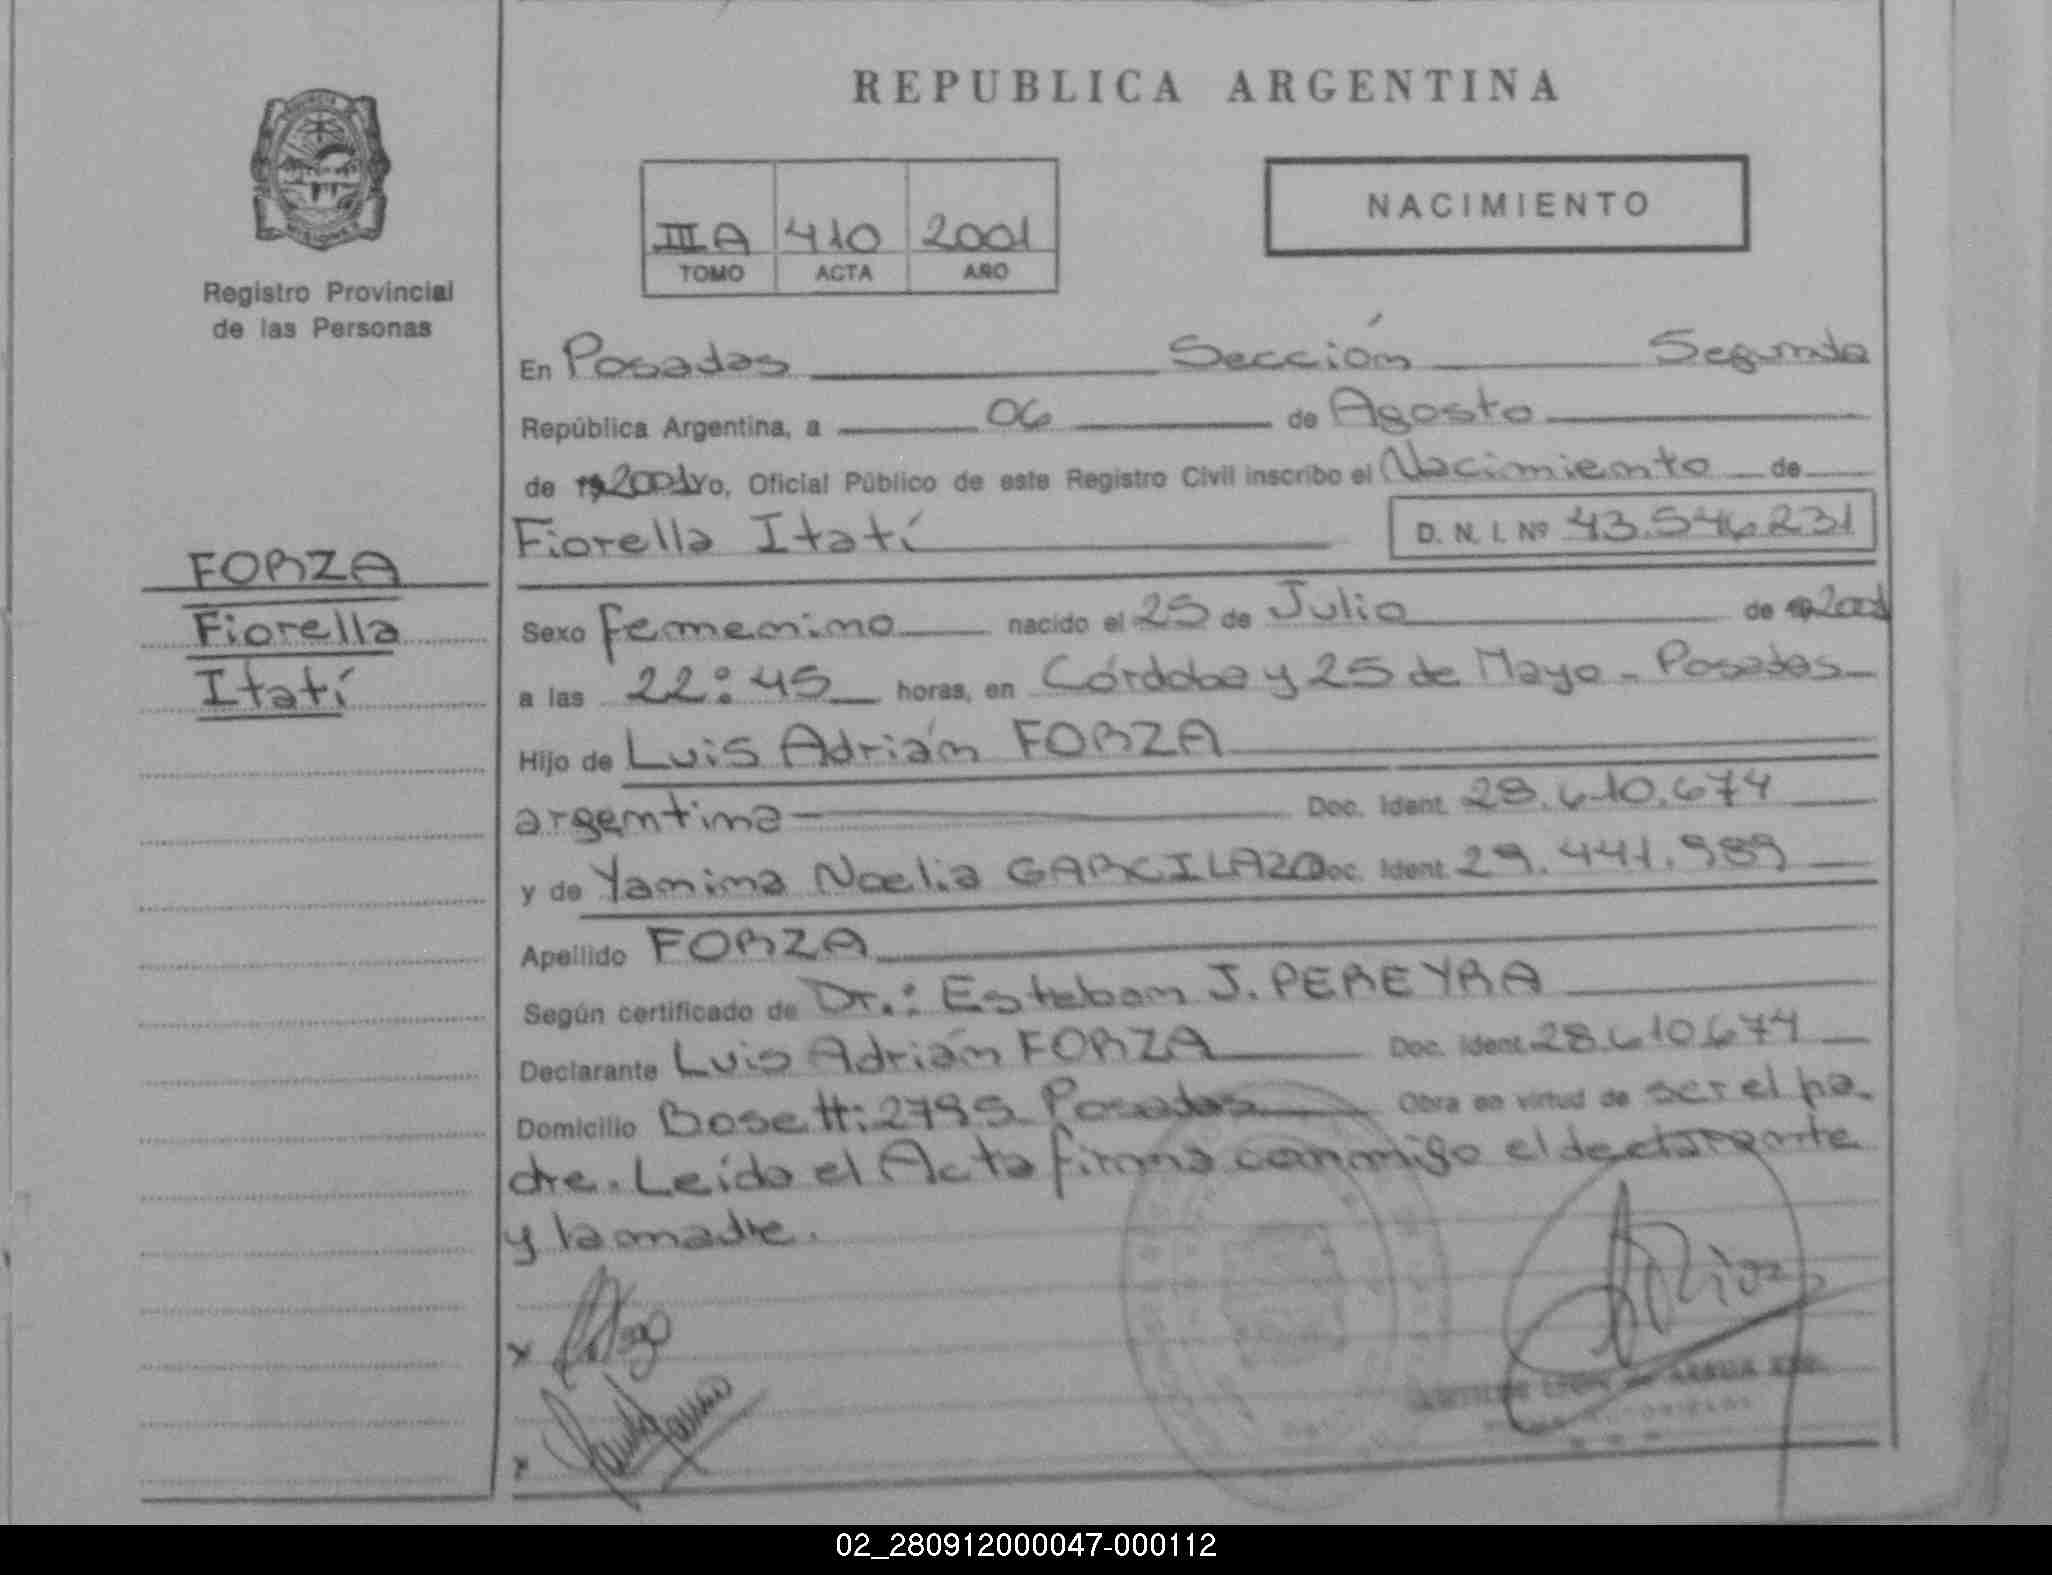 REPUBLICA ARGENTINA
NACIMIENTO
III A 410 2001
TOMO ACTA AÑO
Registro Provincial
de las Personas
En Posadas Sección Segunda
República Argentina, a 06 de Agosto
de 2001 yo, Oficial Público de este Registro Civil inscribo el Nacimiento de
Fiorella Itatí D. N. I. Nº 43.546.231
FORZA
Fiorella
Itatí
Sexo femenino nacido el 25 de Julio de 2001
a las 22:45 horas, en Córdoba y 25 de Mayo - Posadas
Hijo de Luis Adrián FORZA
argentina Doc. Ident. 28.610.674
y de Yamina Noelia GARCILAZO Doc. Ident. 29.441.989
Apellido FORZA
Según certificado de Dr.: Esteban J. PEREYRA
Declarante Luis Adrián FORZA Doc. Ident. 28.610.674
Domicilio Bosetti 2795 Posadas Obra en virtud de ser el pa-
dre. Leída el Acta firma conmigo el declarante
y la madre.
x
x
02_280912000047-000112